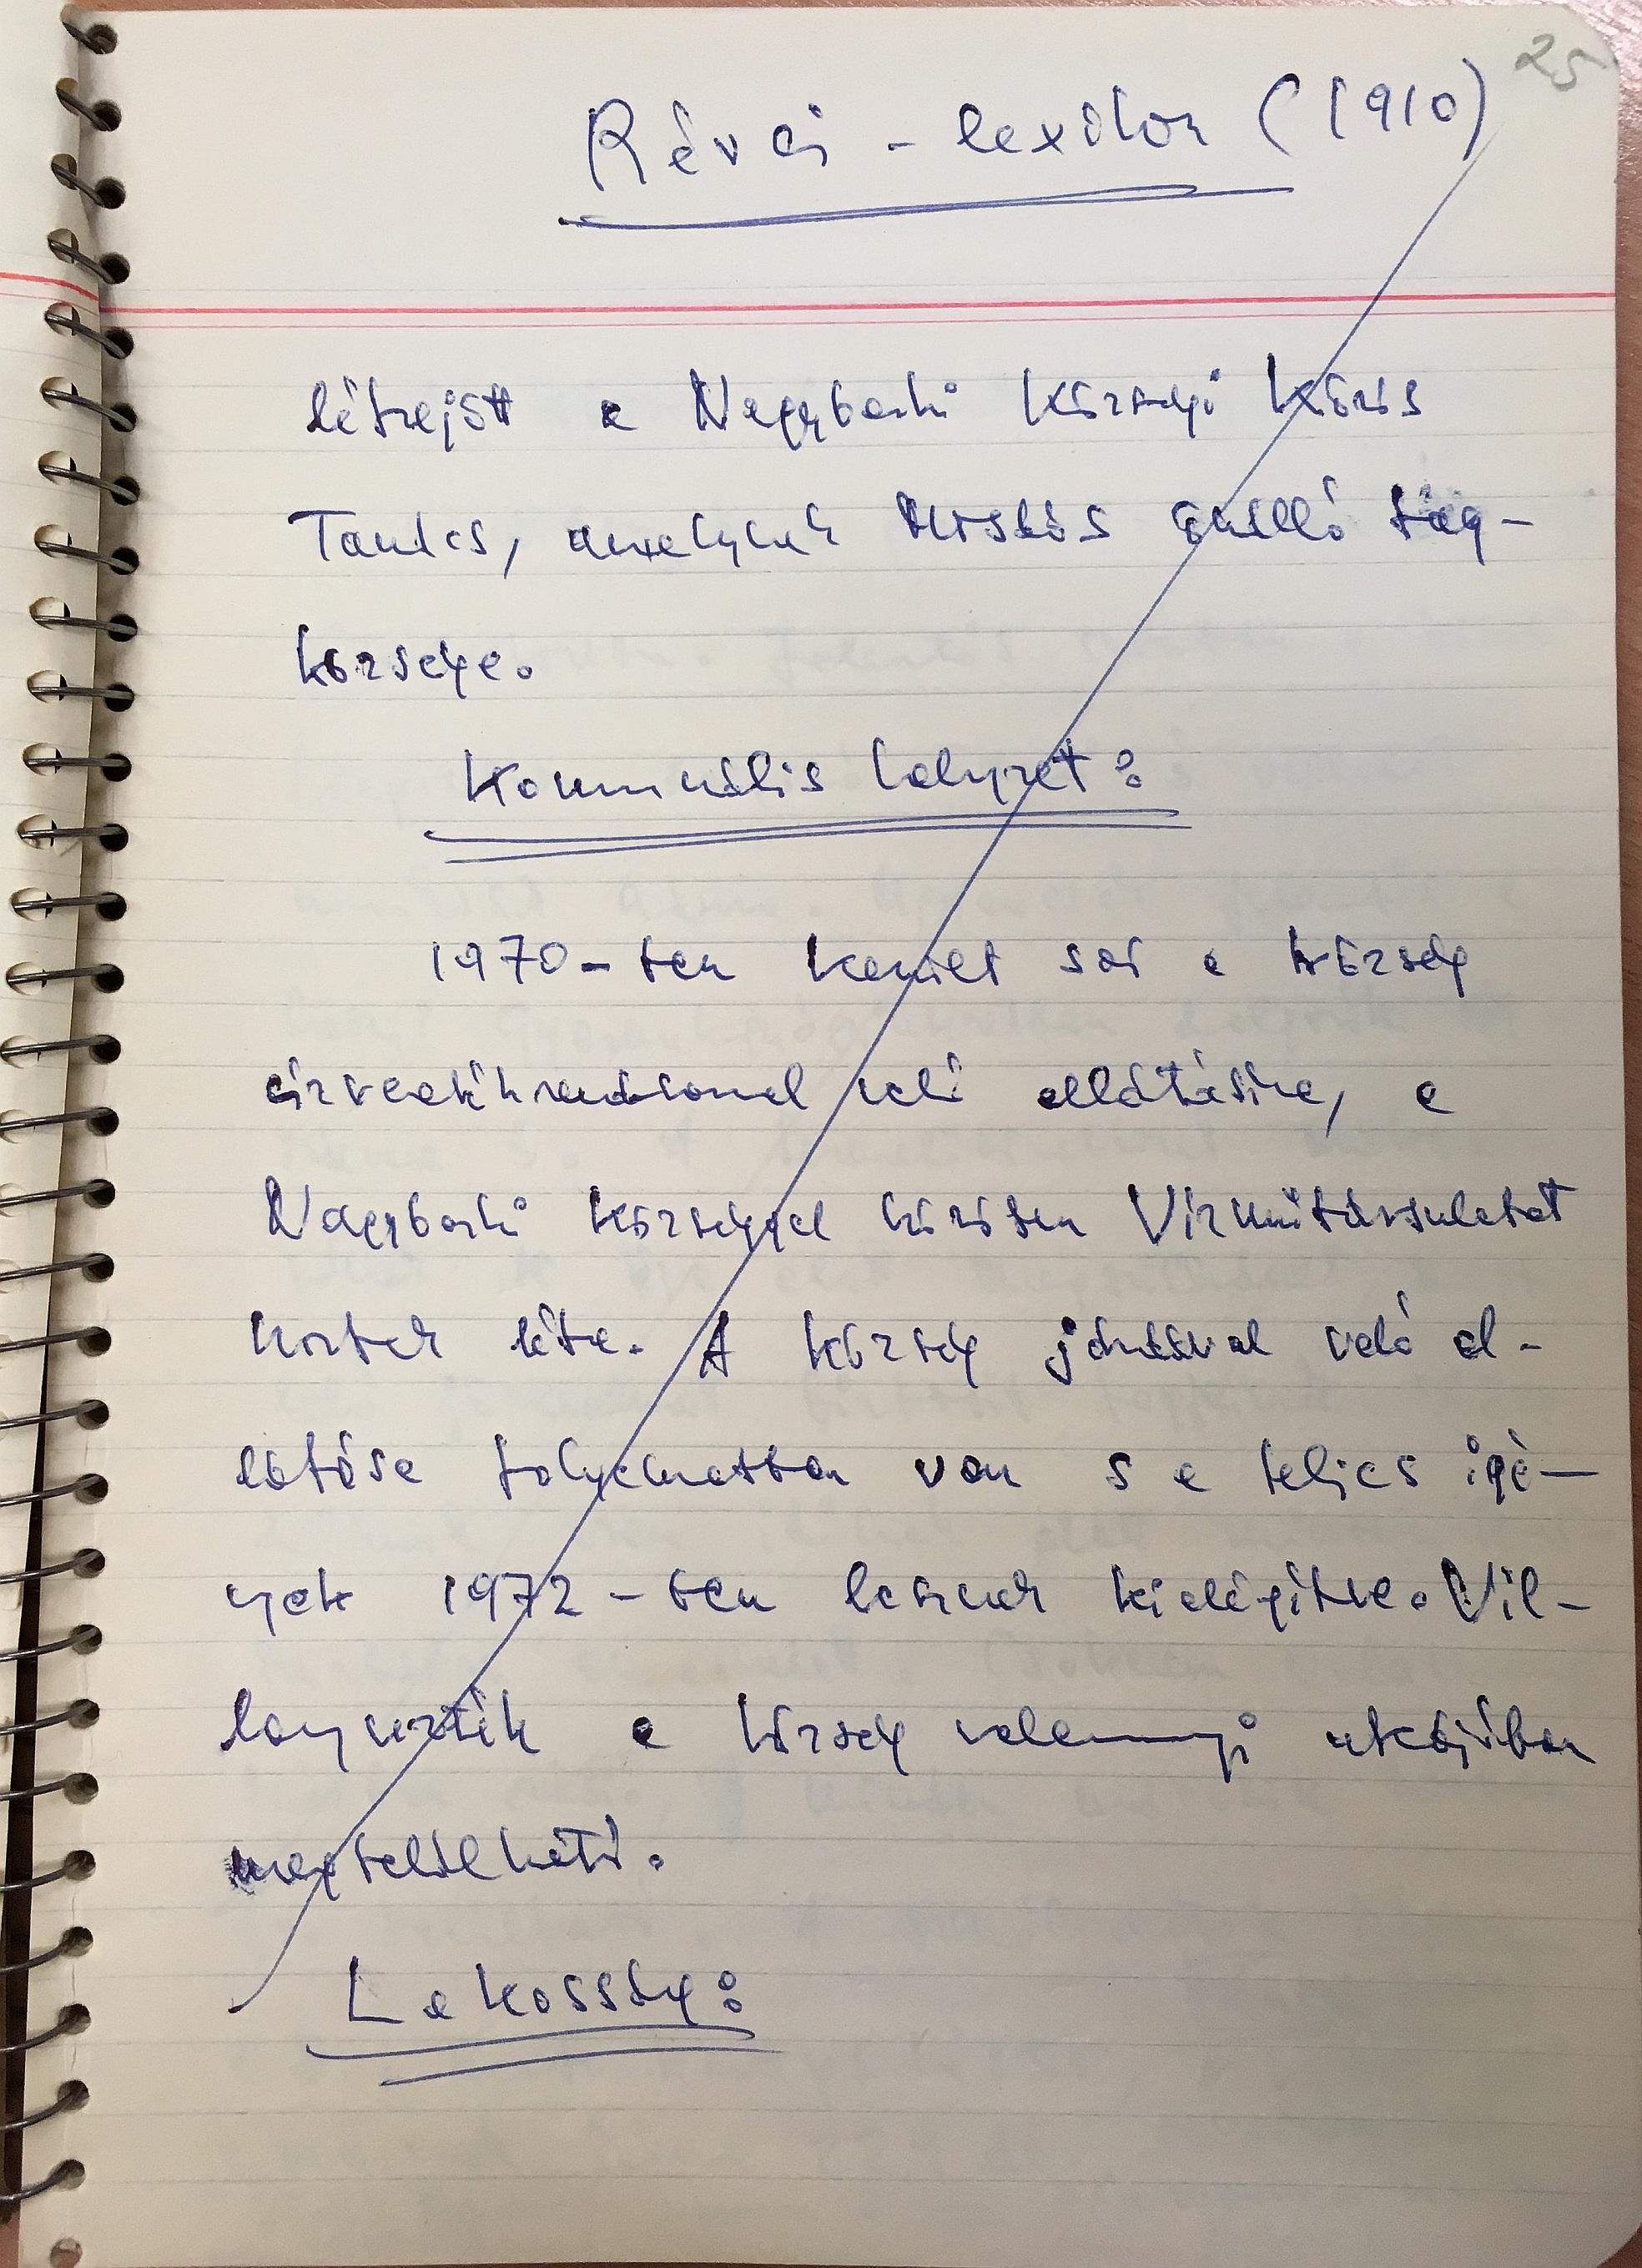 25
Révai - lexikon (1910)
létrejött a Nagybarki Községi Közös
Tanács, amelynek önálló tag-
községe.
Kommunális helyzet:
1970-ben került sor a község
való ellátására, a
Nagybarki községgel közösen Vízműtársulatot
hoztak létre. A község járdával való el-
látása folyamatban van s a teljes igé-
nyek 1972-ben lesznek kielégítve. Vil-
lany a község valamennyi utcájában
megtalálható.
Lakosság: